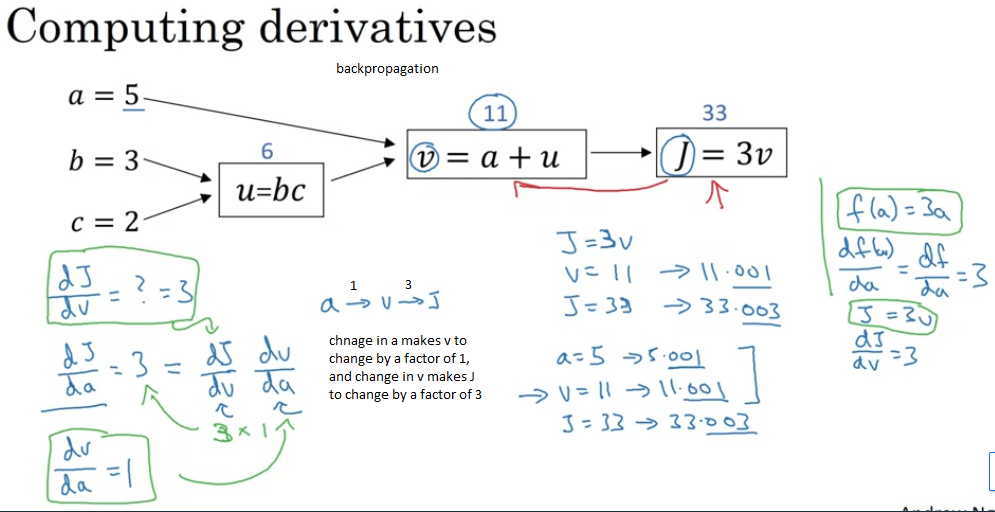 Computing derivatives
backpropagation
a = 5
b = 3
c = 2
6
u=bc
11
v = a + u
33
J = 3v
dJ/dv = ? = 3
dJ/da = 3 = dJ/dv dv/da
3 × 1
dv/da = 1
1 3
a → v → J
chnage in a makes v to
change by a factor of 1,
and change in v makes J
to change by a factor of 3
J = 3v
v = 11 → 11.001
J = 33 → 33.003
a = 5 → 5.001
→ v = 11 → 11.001
J = 33 → 33.003
f(a) = 3a
df(a)/da = df/da = 3
J = 3v
dJ/dv = 3